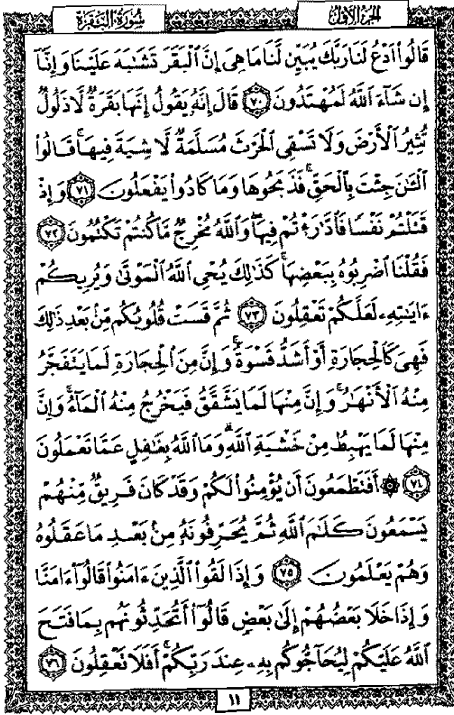 سُورَةُ البَقَرَةِ الجزء الأول
قَالُوا۟ ٱدْعُ لَنَا رَبَّكَ يُبَيِّن لَّنَا مَا هِىَ إِنَّ ٱلْبَقَرَ تَشَٰبَهَ عَلَيْنَا وَإِنَّآ
إِن شَآءَ ٱللَّهُ لَمُهْتَدُونَ ٧٠ قَالَ إِنَّهُۥ يَقُولُ إِنَّهَا بَقَرَةٌ لَّا ذَلُولٌ
تُثِيرُ ٱلْأَرْضَ وَلَا تَسْقِى ٱلْحَرْثَ مُسَلَّمَةٌ لَّا شِيَةَ فِيهَا ۚ قَالُوا۟
ٱلْـَٰٔنَ جِئْتَ بِٱلْحَقِّ ۚ فَذَبَحُوهَا وَمَا كَادُوا۟ يَفْعَلُونَ ٧١ وَإِذْ
قَتَلْتُمْ نَفْسًا فَٱدَّٰرَْٰٔتُمْ فِيهَا ۖ وَٱللَّهُ مُخْرِجٌ مَّا كُنتُمْ تَكْتُمُونَ ٧٢
فَقُلْنَا ٱضْرِبُوهُ بِبَعْضِهَا ۚ كَذَٰلِكَ يُحْىِ ٱللَّهُ ٱلْمَوْتَىٰ وَيُرِيكُمْ
ءَايَٰتِهِۦ لَعَلَّكُمْ تَعْقِلُونَ ٧٣ ثُمَّ قَسَتْ قُلُوبُكُم مِّنۢ بَعْدِ ذَٰلِكَ
فَهِىَ كَٱلْحِجَارَةِ أَوْ أَشَدُّ قَسْوَةً ۚ وَإِنَّ مِنَ ٱلْحِجَارَةِ لَمَا يَتَفَجَّرُ
مِنْهُ ٱلْأَنْهَٰرُ ۚ وَإِنَّ مِنْهَا لَمَا يَشَّقَّقُ فَيَخْرُجُ مِنْهُ ٱلْمَآءُ ۚ وَإِنَّ
مِنْهَا لَمَا يَهْبِطُ مِنْ خَشْيَةِ ٱللَّهِ ۗ وَمَا ٱللَّهُ بِغَٰفِلٍ عَمَّا تَعْمَلُونَ
٧٤ ۞ أَفَتَطْمَعُونَ أَن يُؤْمِنُوا۟ لَكُمْ وَقَدْ كَانَ فَرِيقٌ مِّنْهُمْ
يَسْمَعُونَ كَلَٰمَ ٱللَّهِ ثُمَّ يُحَرِّفُونَهُۥ مِنۢ بَعْدِ مَا عَقَلُوهُ
وَهُمْ يَعْلَمُونَ ٧٥ وَإِذَا لَقُوا۟ ٱلَّذِينَ ءَامَنُوا۟ قَالُوٓا۟ ءَامَنَّا
وَإِذَا خَلَا بَعْضُهُمْ إِلَىٰ بَعْضٍ قَالُوٓا۟ أَتُحَدِّثُونَهُم بِمَا فَتَحَ
ٱللَّهُ عَلَيْكُمْ لِيُحَآجُّوكُم بِهِۦ عِندَ رَبِّكُمْ ۚ أَفَلَا تَعْقِلُونَ ٧٦
١١